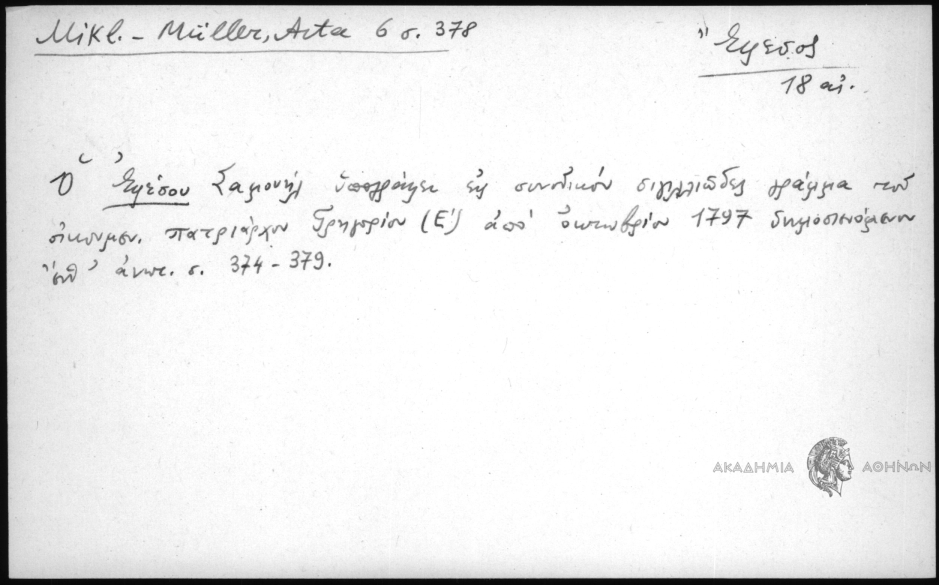 Mikl. - Müller, Acta 6 σ. 378
Ἔφεσος
18 αἰ.
Ὁ Ἐφέσου Σαμουὴλ ὑπογράφει εἰς συνοδικὸν σιγιλλιῶδες γράμμα τοῦ
οἰκουμεν. πατριάρχου Γρηγορίου (Ε΄) ἀπὸ ὀκτωβρίου 1797 δημοσιευόμενον
ἔνθ᾽ ἀνωτ. σ. 374 - 379.
ΑΚΑΔΗΜΙΑ ΑΘΗΝΩΝ